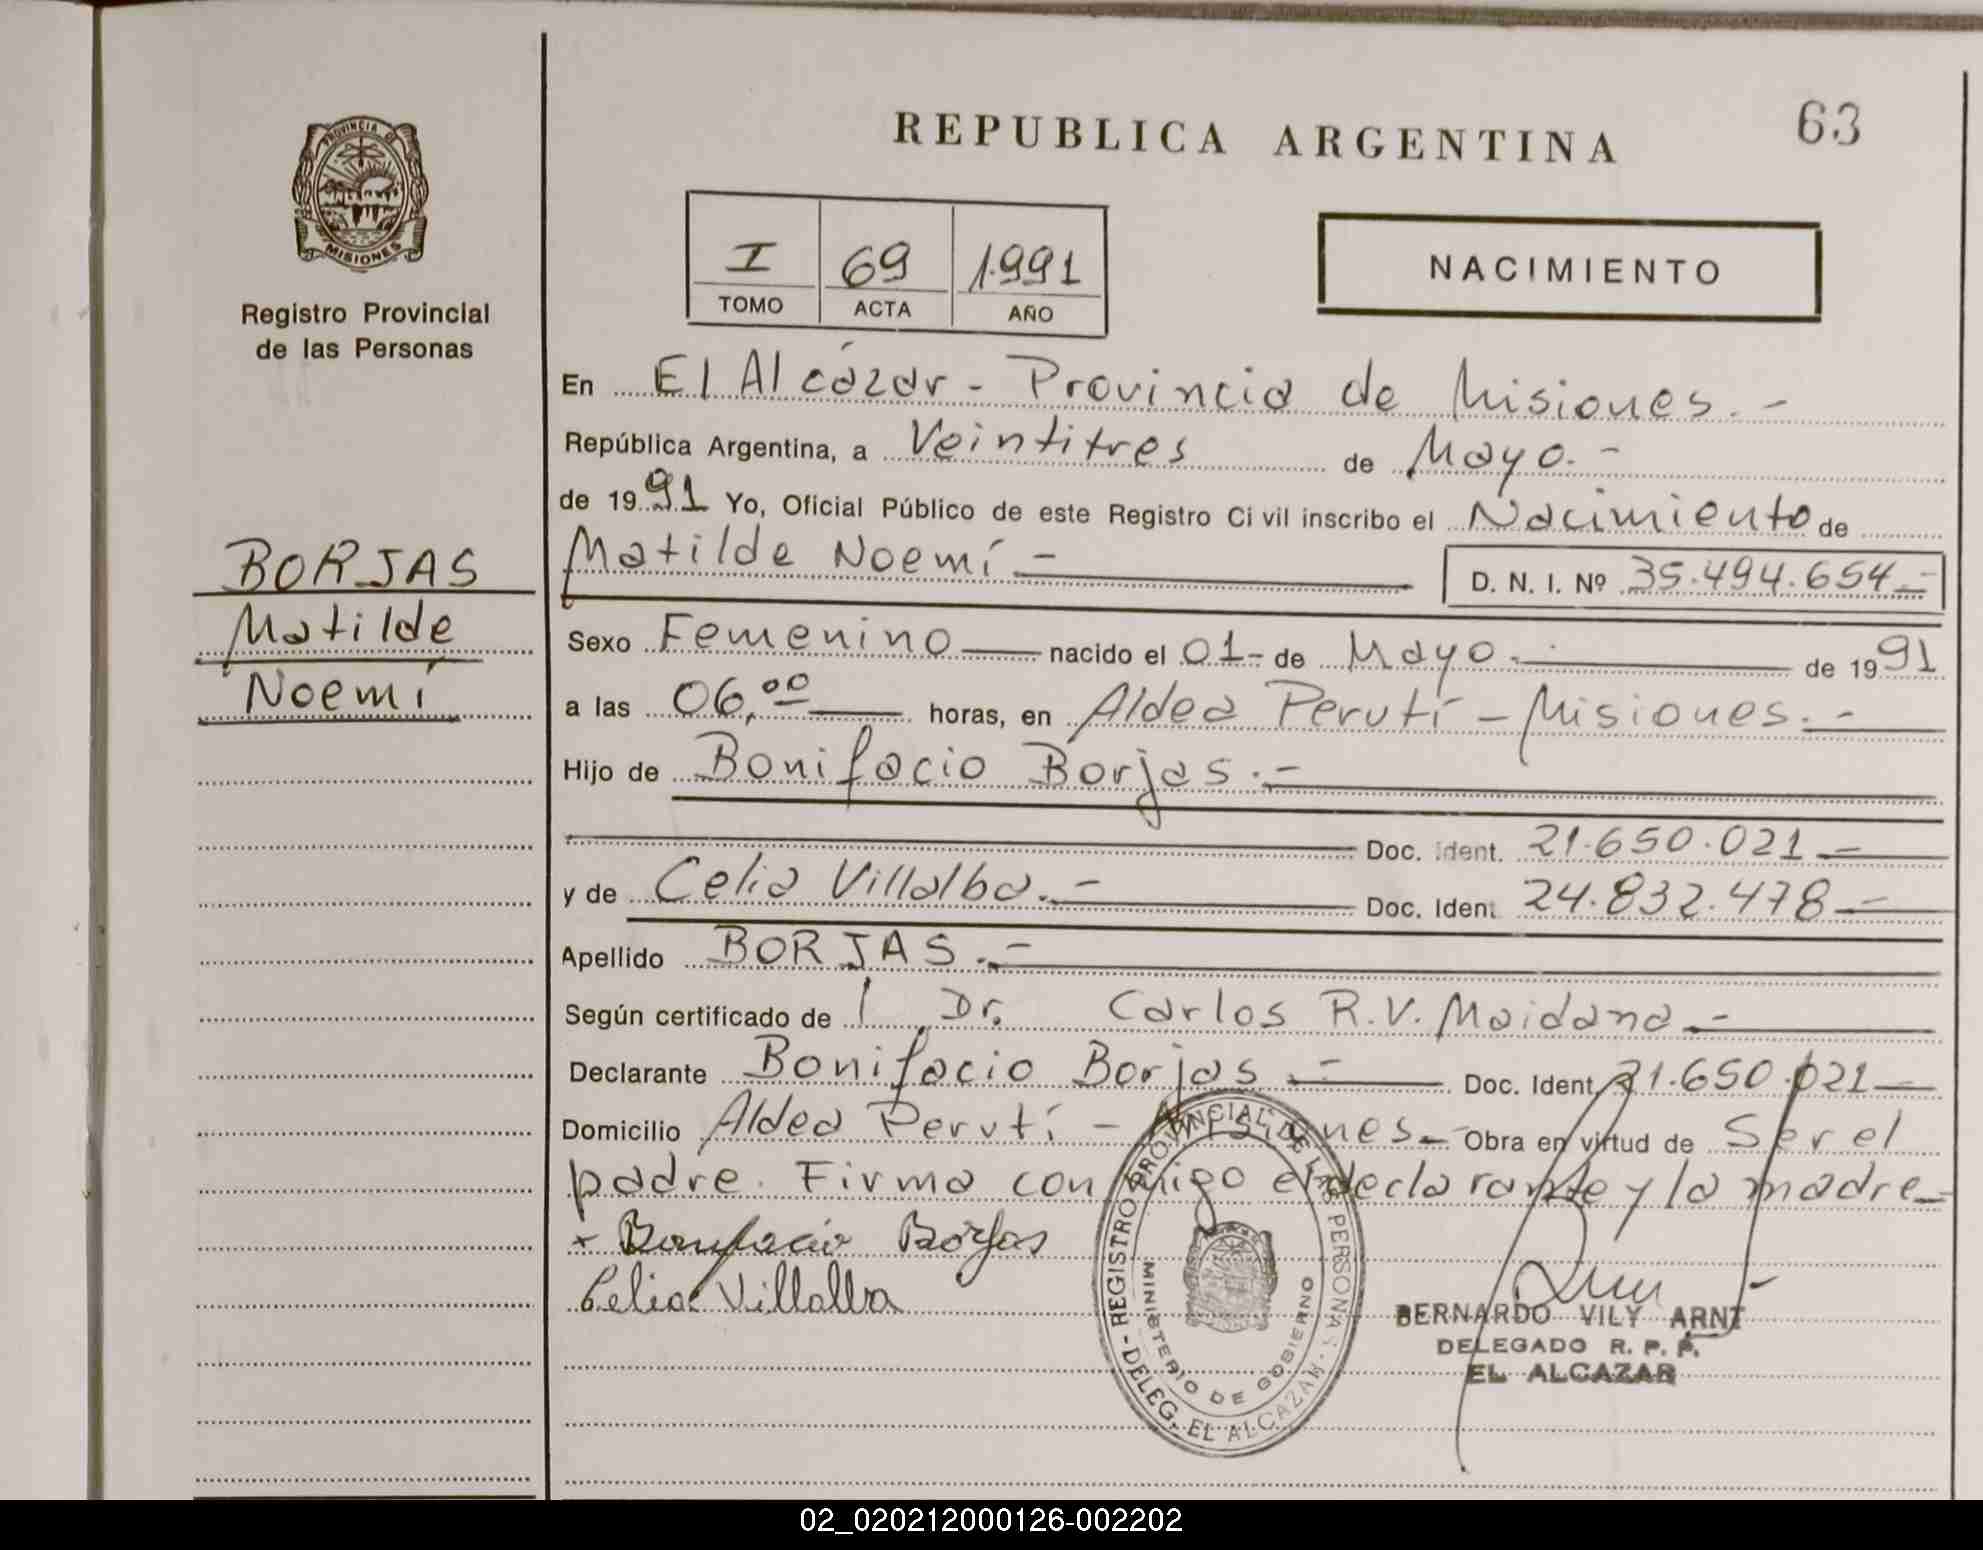 PROVINCIA DE
MISIONES
Registro Provincial
de las Personas
BORJAS
Matilde
Noemí
REPUBLICA ARGENTINA
63
I 69 1.991
TOMO ACTA AÑO
NACIMIENTO
En El Alcázar - Provincia de Misiones.-
República Argentina, a Veintitres de Mayo.-
de 1991 Yo, Oficial Público de este Registro Civil inscribo el Nacimiento de
Matilde Noemí - D. N. I. Nº 35.494.654.-
Sexo Femenino nacido el 01- de Mayo.- de 1991
a las 06,00 horas, en Aldea Perutí - Misiones.-
Hijo de Bonifacio Borjas.-
Doc. Ident. 21.650.021.-
y de Celia Villalba.- Doc. Ident 24.832.478.-
Apellido BORJAS.-
Según certificado de Dr. Carlos R.V. Maidana.-
Declarante Bonifacio Borjas.- Doc. Ident. 21.650.021
Domicilio Aldea Perutí - Misiones.- Obra en virtud de Ser el
padre. Firma conmigo el declarante y la madre-
x Bonifacio Borjas
Celia Villalba
REGISTRO PROVINCIAL DE LAS PERSONAS - DELEG. EL ALCAZAR -
MINISTERIO DE GOBIERNO
BERNARDO VILY ARNT
DELEGADO R. P. P.
EL ALCAZAR
02_020212000126-002202